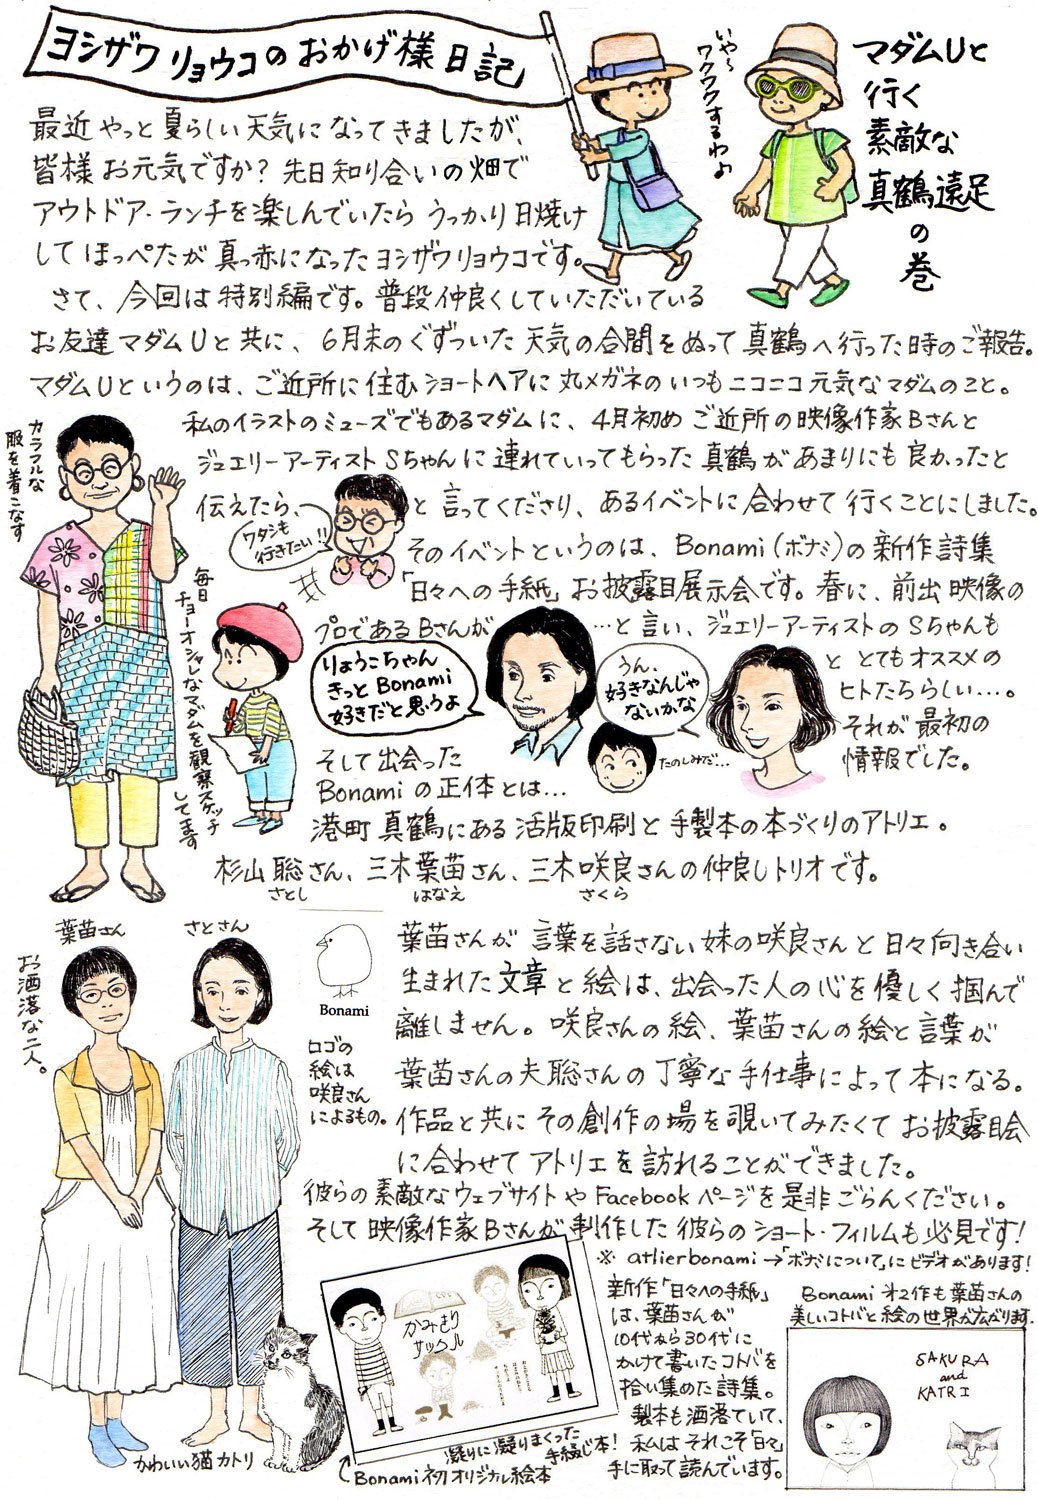 ヨシザワリョウコのおかげ様日記
いや〜
ワクワクするわよ
マダムUと
行く
素敵な
真鶴遠足
の
巻
最近やっと夏らしい天気になってきましたが、
皆様お元気ですか？先日知り合いの畑で
アウトドア・ランチを楽しんでいたらうっかり日焼け
してほっぺたが真っ赤になったヨシザワリョウコです。
さて、今回は特別編です。普段仲良くしていただいている
お友達マダムUと共に、6月末のぐずついた天気の合間をぬって真鶴へ行った時のご報告。
マダムUというのは、ご近所に住むショートヘアに丸メガネのいつもニコニコ元気なマダムのこと。
私のイラストのミューズでもあるマダムに、4月初めご近所の映像作家Bさんと
ジュエリーアーティストSちゃんに連れていってもらった真鶴があまりにも良かったと
伝えたら、
ワタシも
行きたい!!
と言ってくださり、あるイベントに合わせて行くことにしました。
カラフルな
服を着こなす
毎日
チョーオシャレなマダムを観察スケッチ
してます
そのイベントというのは、Bonami(ボナミ)の新作詩集
「日々への手紙」お披露目展示会です。春に、前出映像の
プロであるBさんが
りょうこちゃん
きっとBonami
好きだと思うよ
…と言い、ジュエリーアーティストのSちゃんも
うん、
好きなんじゃ
ないかな
ととてもオススメの
ヒトたちらしい…。
それが最初の
情報でした。
たのしみだ…
そして出会った
Bonamiの正体とは…
港町真鶴にある活版印刷と手製本の本づくりのアトリエ。
杉山聡さん、三木葉苗さん、三木咲良さんの仲良しトリオです。
さとし
はなえ
さくら
葉苗さん
さとさん
お洒落な二人。
Bonami
ロゴの
絵は
咲良さん
によるもの。
葉苗さんが言葉を話さない妹の咲良さんと日々向き合い
生まれた文章と絵は、出会った人の心を優しく掴んで
離しません。咲良さんの絵、葉苗さんの絵と言葉が
葉苗さんの夫聡さんの丁寧な手仕事によって本になる。
作品と共にその創作の場を覗いてみたくてお披露目会
に合わせてアトリエを訪れることができました。
彼らの素敵なウェブサイトやFacebookページを是非ごらんください。
そして映像作家Bさんが制作した彼らのショート・フィルムも必見です!
※ atlierbonami→「ボナミについて」にビデオがあります!
かわいい猫カトリ
かみきり
サックル
凝りに凝りまくった
手綴じ本!
Bonami初オリジナル絵本
新作「日々への手紙」
は、葉苗さんが
10代から30代に
かけて書いたコトバを
拾い集めた詩集。
製本も洒落ていて、
私はそれこそ「日々」
手に取って読んでいます。
Bonami 第2作も葉苗さんの
美しいコトバと絵の世界が広がります.
SAKURA
and
KATRI